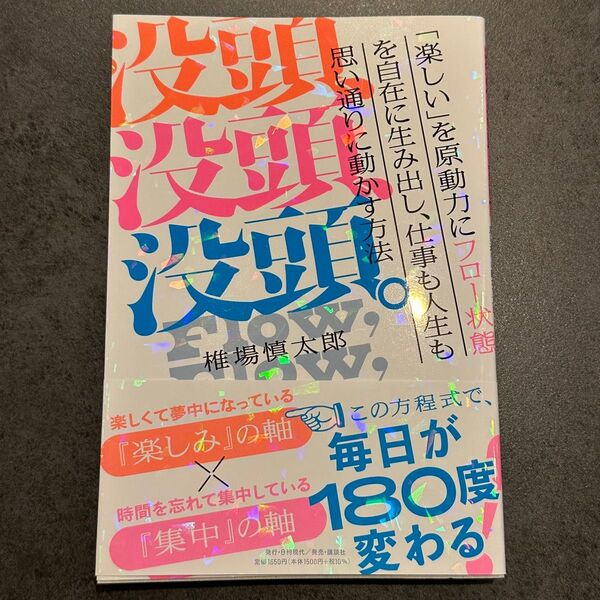 没頭、
没頭、
没頭。
「楽しい」を原動力にフロー状態
を自在に生み出し、仕事も人生も
思い通りに動かす方法
Flow,
Flow,
椎場慎太郎
楽しくて夢中になっている
『楽しみ』の軸
×
時間を忘れて集中している
『集中』の軸
この方程式で、
毎日が
180度
変わる!
発行・日刊現代/発売・講談社
定価1650円(本体1500円+税10%)